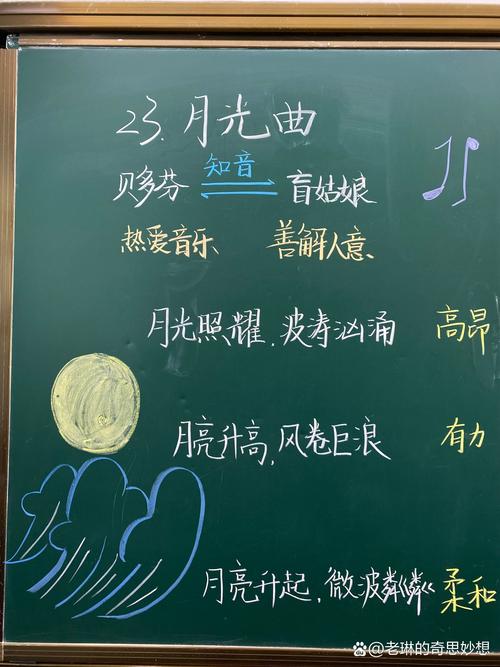 23.月光曲
知音
贝多芬 盲姑娘
热爱音乐 善解人意
月光照耀.波涛汹涌 高昂
月亮升高,风卷巨浪 有力
月亮升起,微波粼粼 柔和
老琳的奇思妙想